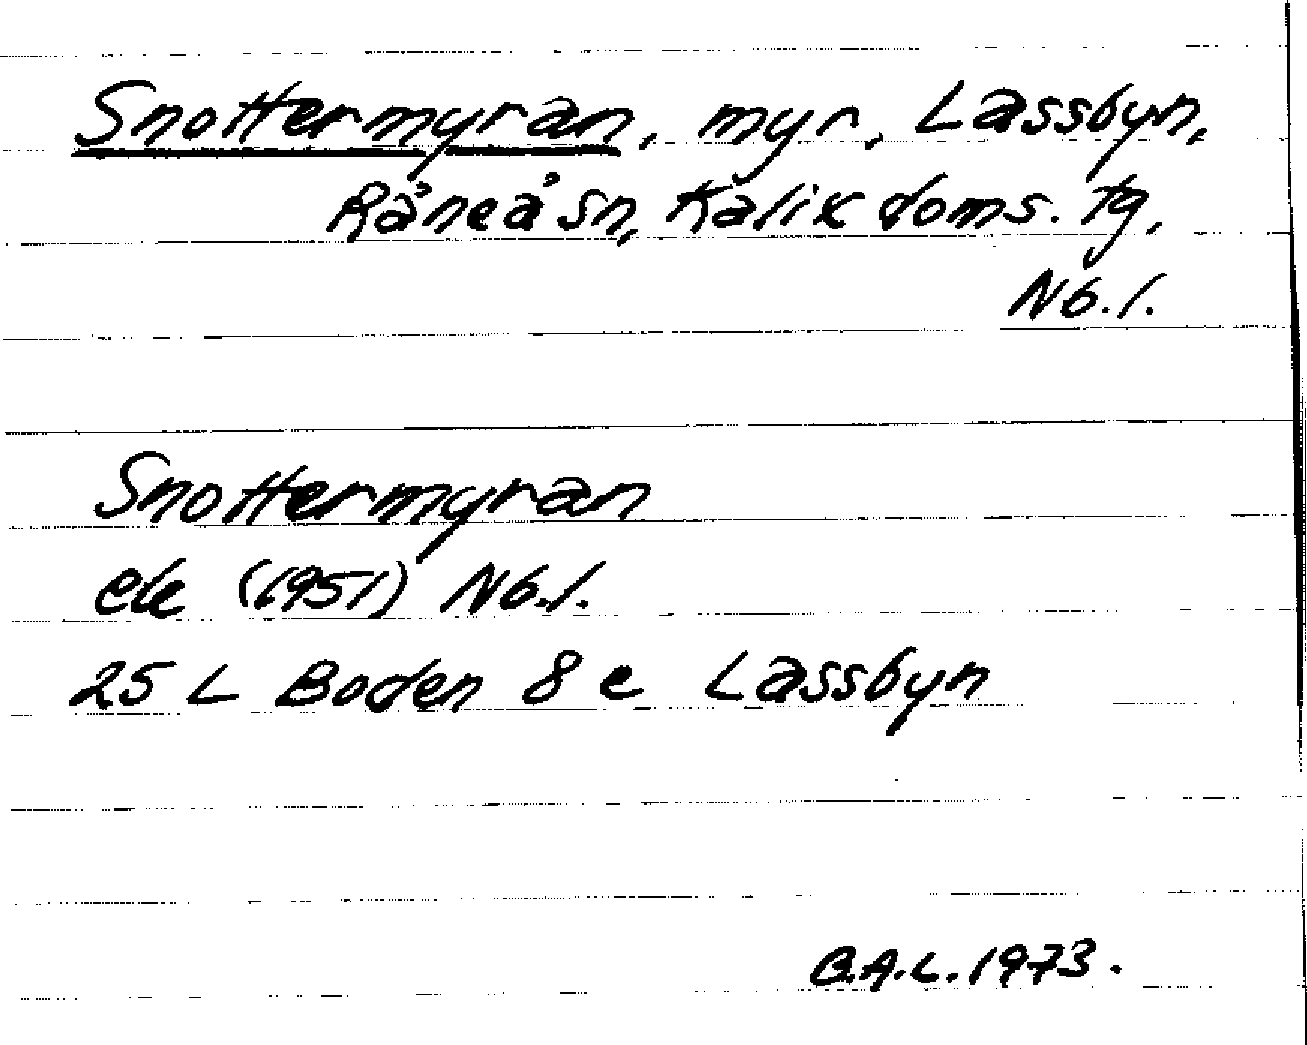 Snottermyran, myr, Lassbyn,
Råneå sn, Kalix doms. tg,
Nb. l.
Snottermyran
ek (1951) Nb. l.
25 L Boden 8 e Lassbyn
B.A.L. 1973.